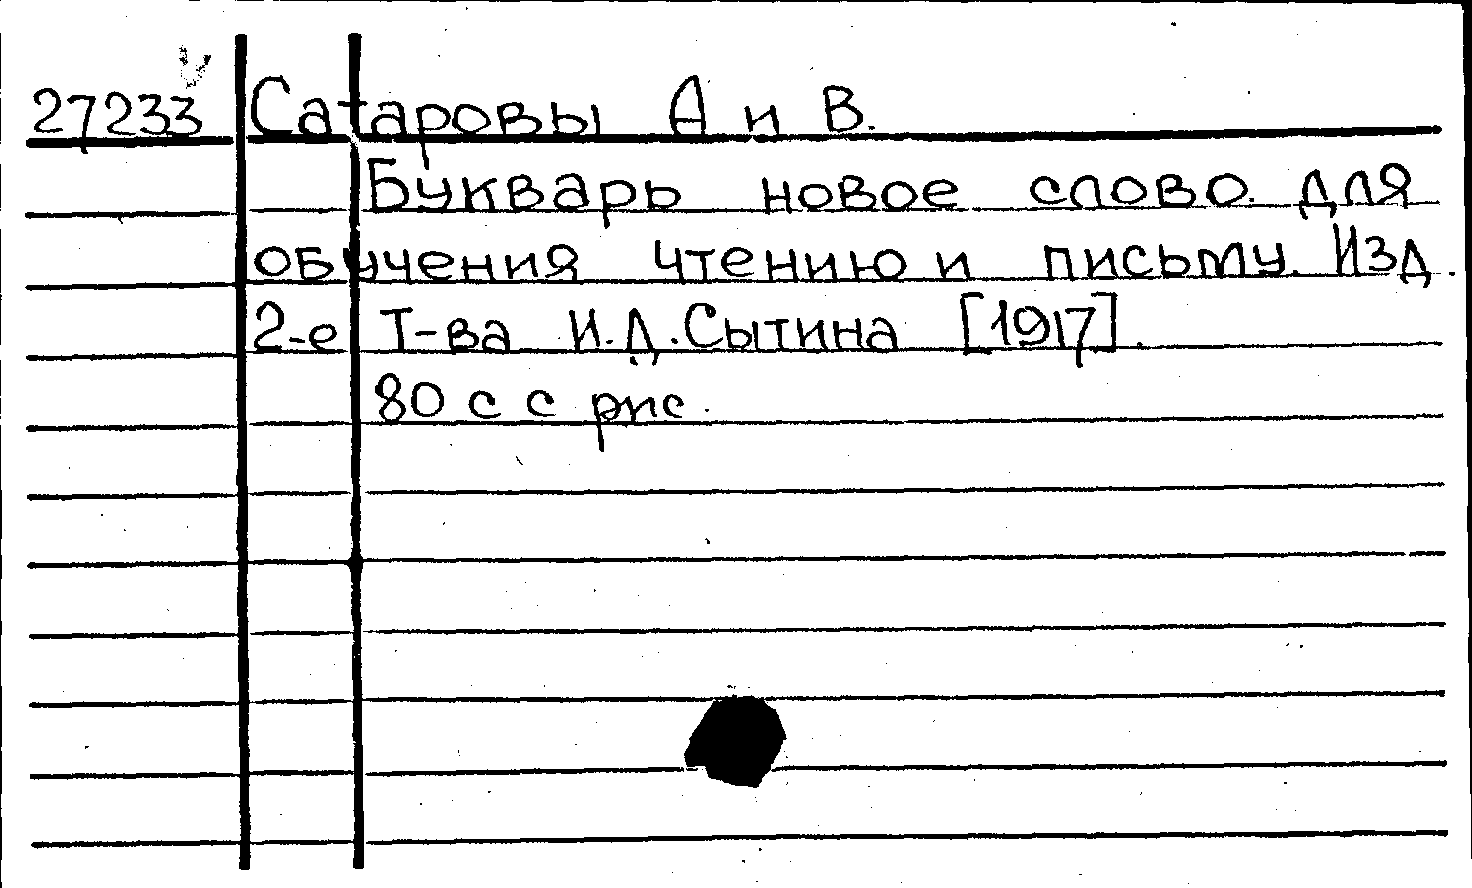 27233 Сатаровы А и В.
Букварь новое слово. Для
обучения чтению и письму. Изд.
2-е Т-ва И.Д.Сытина [1917].
80 с с рис.